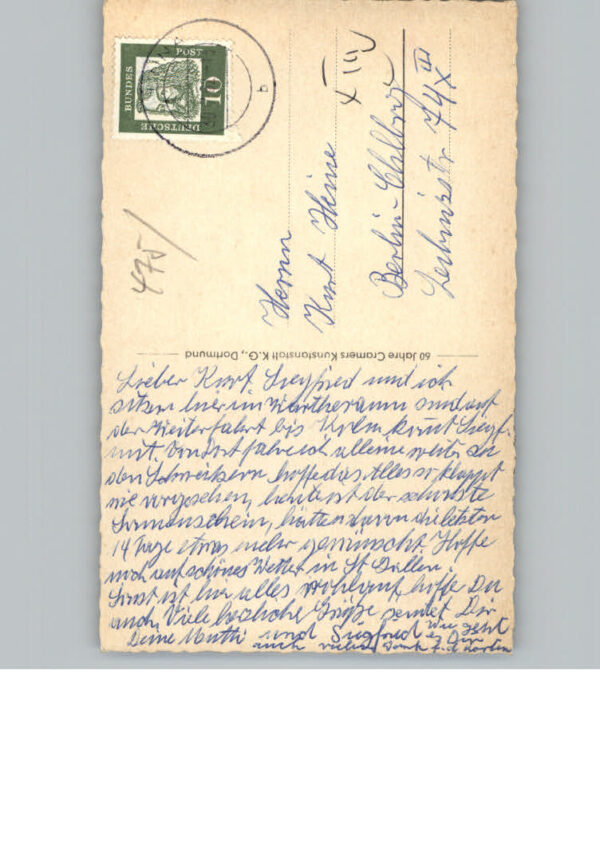 DEUTSCHE
BUNDES
POST
10
b
475/
XIII
Herrn
Kurt Heine
Berlin-Chlbrg
Leibnizstr 74 X III
60 Jahre Cramers Kunstanstalt K.G., Dortmund
Lieber Kurt, Siegfried und ich
sitzen hier im Warteraum sind auf
der Weiterfahrt bis Köln kommt Siegf.
mit. Von dort fahre ich alleine weiter zu
den Schweitzern hoffe das Alles so klappt
wie vorgesehen, heute ist der schönste
Sonnenschein, hätten davon die letzten
14 Tage etwas mehr gewünscht. Hoffe
noch auf schönes Wetter in St Gallen.
Sonst ist hier alles wohlauf, hoffe Du
auch, Viele herzliche Grüße sendet Dir
Deine Mutti und Siegfried Wie geht
es Dir
auch vielen Dank f. d. Karten